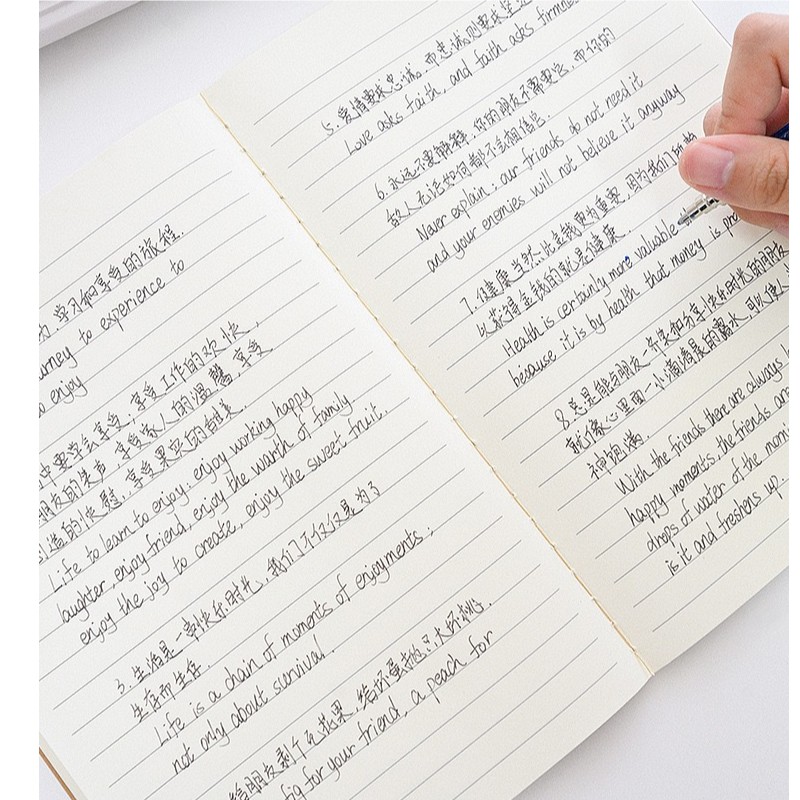 学习和享受的旅程.
to experience to
enjoy
中要学会享受:享受工作的欢快,
朋友的笑声,享受家人的温馨,享受
创造的快慰,享受果实的甜美.
Life to learn to enjoy: enjoy working happy
laughter, enjoy friend, enjoy the warth of family.
enjoy the joy to create, enjoy the sweet fruit.
3. 生活是一串快乐时光,我们不仅仅是为了
生存而生存.
Life is a chain of moments of enjoyments;
not only about survival.
给朋友剥个无花果,给坏蛋抛个大坏桃.
fig for your friend, a peach for
5. 爱情要求忠诚,而忠诚则要求坚
Love asks faith, and faith asks firmne
6. 永远不要解释,你的朋友不需要它,而你的
敌人无论如何都不会相信它.
Never explain: our friends do not need it
and your enemies will not believe it anyway
7. 健康当然比金钱更为重要,因为我们所
以获得金钱的就是健康.
Health is certainly more valuable
because it is by health that money is pro
8. 总是能与朋友一并来和分享快乐时光的朋友
就像心里面一小滴清晨的露水,可以使人
神饱满.
With the friends there are always
happy moments, the friends are
drops of water of the morni
is it and freshens up.